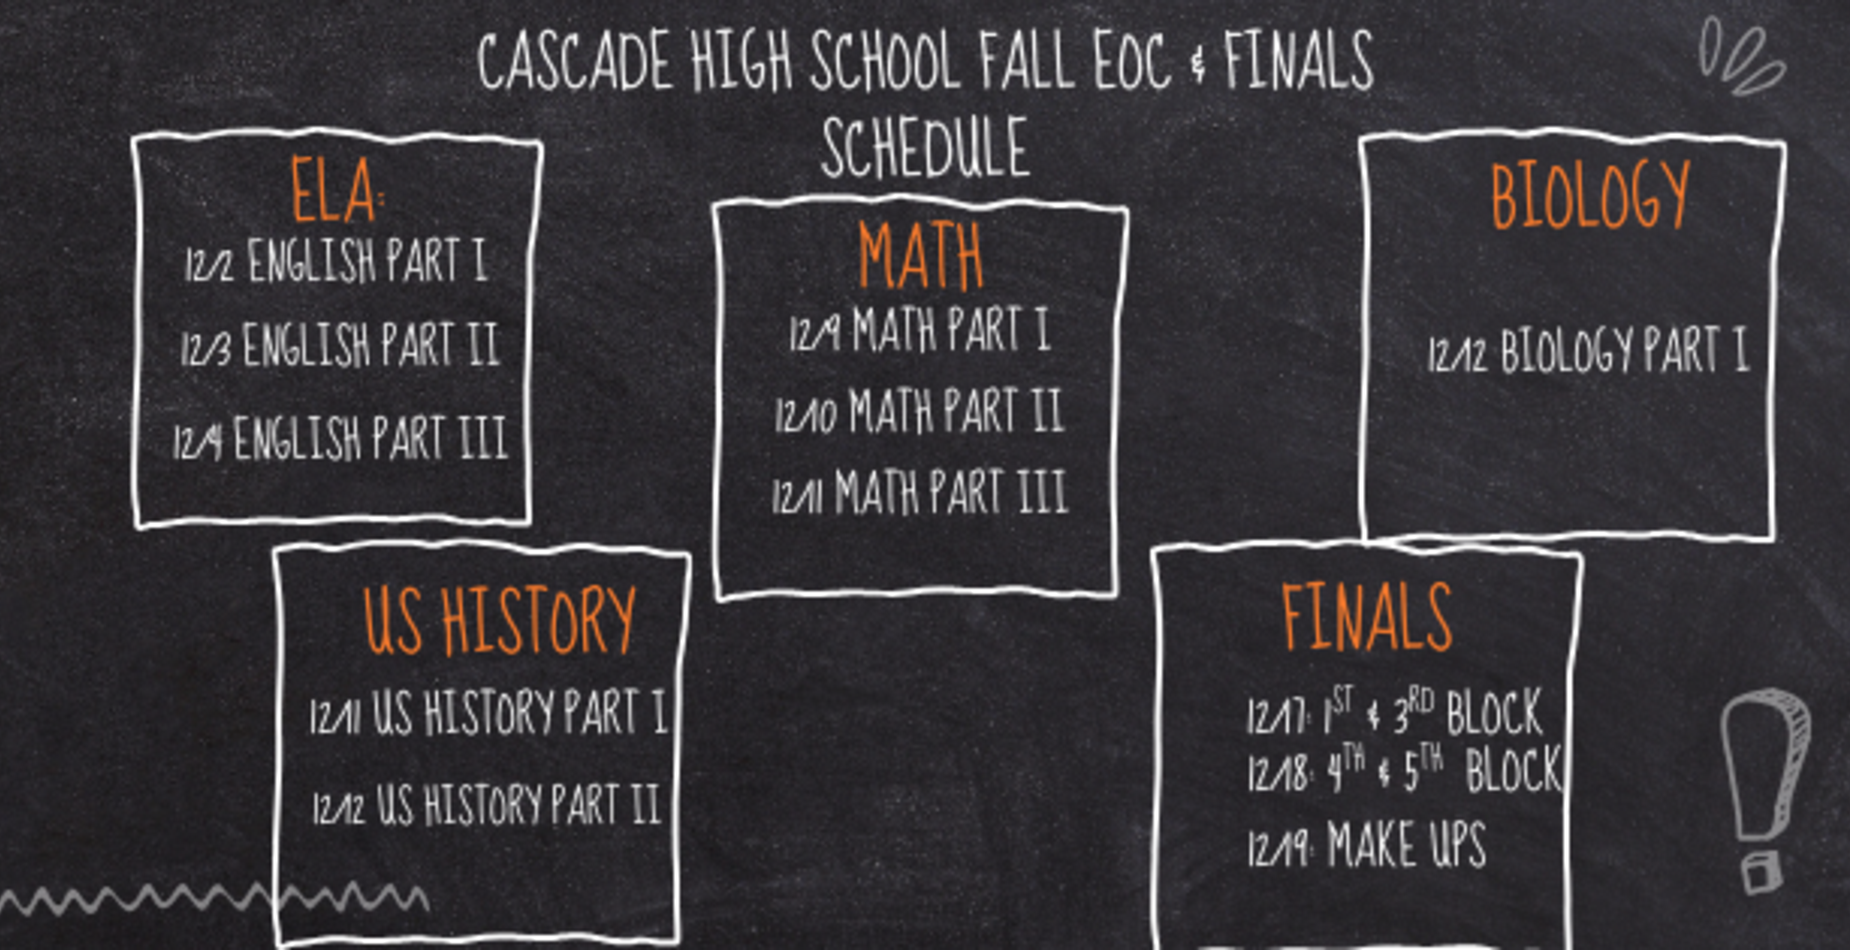 CASCADE HIGH SCHOOL FALL EOC & FINALS
SCHEDULE
ELA:
12/2 ENGLISH PART I
12/3 ENGLISH PART II
12/4 ENGLISH PART III
MATH
12/9 MATH PART I
12/10 MATH PART II
12/11 MATH PART III
BIOLOGY
12/12 BIOLOGY PART I
US HISTORY
12/11 US HISTORY PART I
12/12 US HISTORY PART II
FINALS
12/17: 1ST & 3RD BLOCK
12/18: 4TH & 5TH BLOCK
12/19: MAKE UPS